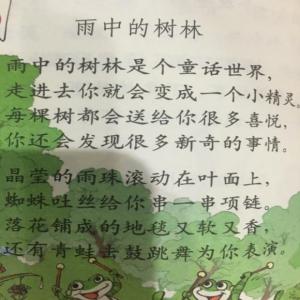 雨中的树林
雨中的树林是个童话世界，
走进去你就会变成一个小精灵。
每棵树都会送给你很多喜悦，
你还会发现很多新奇的事情。
晶莹的雨珠滚动在叶面上，
蜘蛛吐丝给你串一串项链。
落花铺成的地毯又软又香，
还有青蛙击鼓跳舞为你表演。